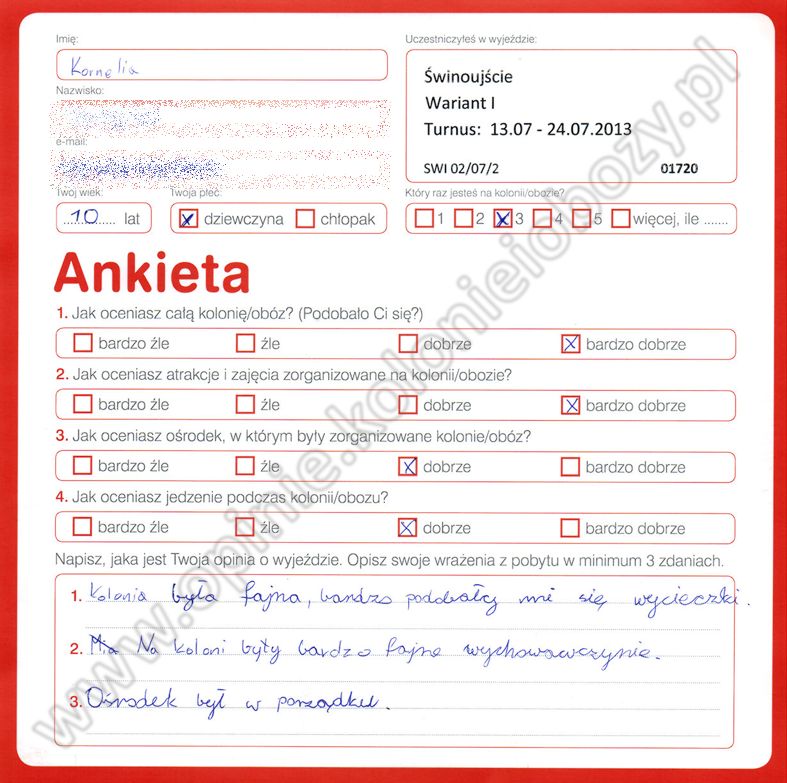 Imię: Uczestniczyłeś w wyjeździe:
Kornelia
Świnoujście
Wariant I
Turnus: 13.07 - 24.07.2013
SWI 02/07/2 01720
Nazwisko:
e-mail:
Twój wiek: Twoja płeć: Który raz jesteś na kolonii/obozie?
10 lat dziewczyna chłopak 1 2 3 4 5 więcej, ile .......
Ankieta
1. Jak oceniasz całą kolonię/obóz? (Podobało Ci się?)
bardzo źle źle dobrze bardzo dobrze
2. Jak oceniasz atrakcje i zajęcia zorganizowane na kolonii/obozie?
bardzo źle źle dobrze bardzo dobrze
3. Jak oceniasz ośrodek, w którym były zorganizowane kolonie/obóz?
bardzo źle źle dobrze bardzo dobrze
4. Jak oceniasz jedzenie podczas kolonii/obozu?
bardzo źle źle dobrze bardzo dobrze
Napisz, jaka jest Twoja opinia o wyjeździe. Opisz swoje wrażenia z pobytu w minimum 3 zdaniach.
1. Kolonia była fajna, bardzo podobały mi się wycieczki.
2. Na koloni były bardzo fajne wychowawczynie.
3. Ośrodek był w porządku.
www.opinie.kolonieiobozy.pl